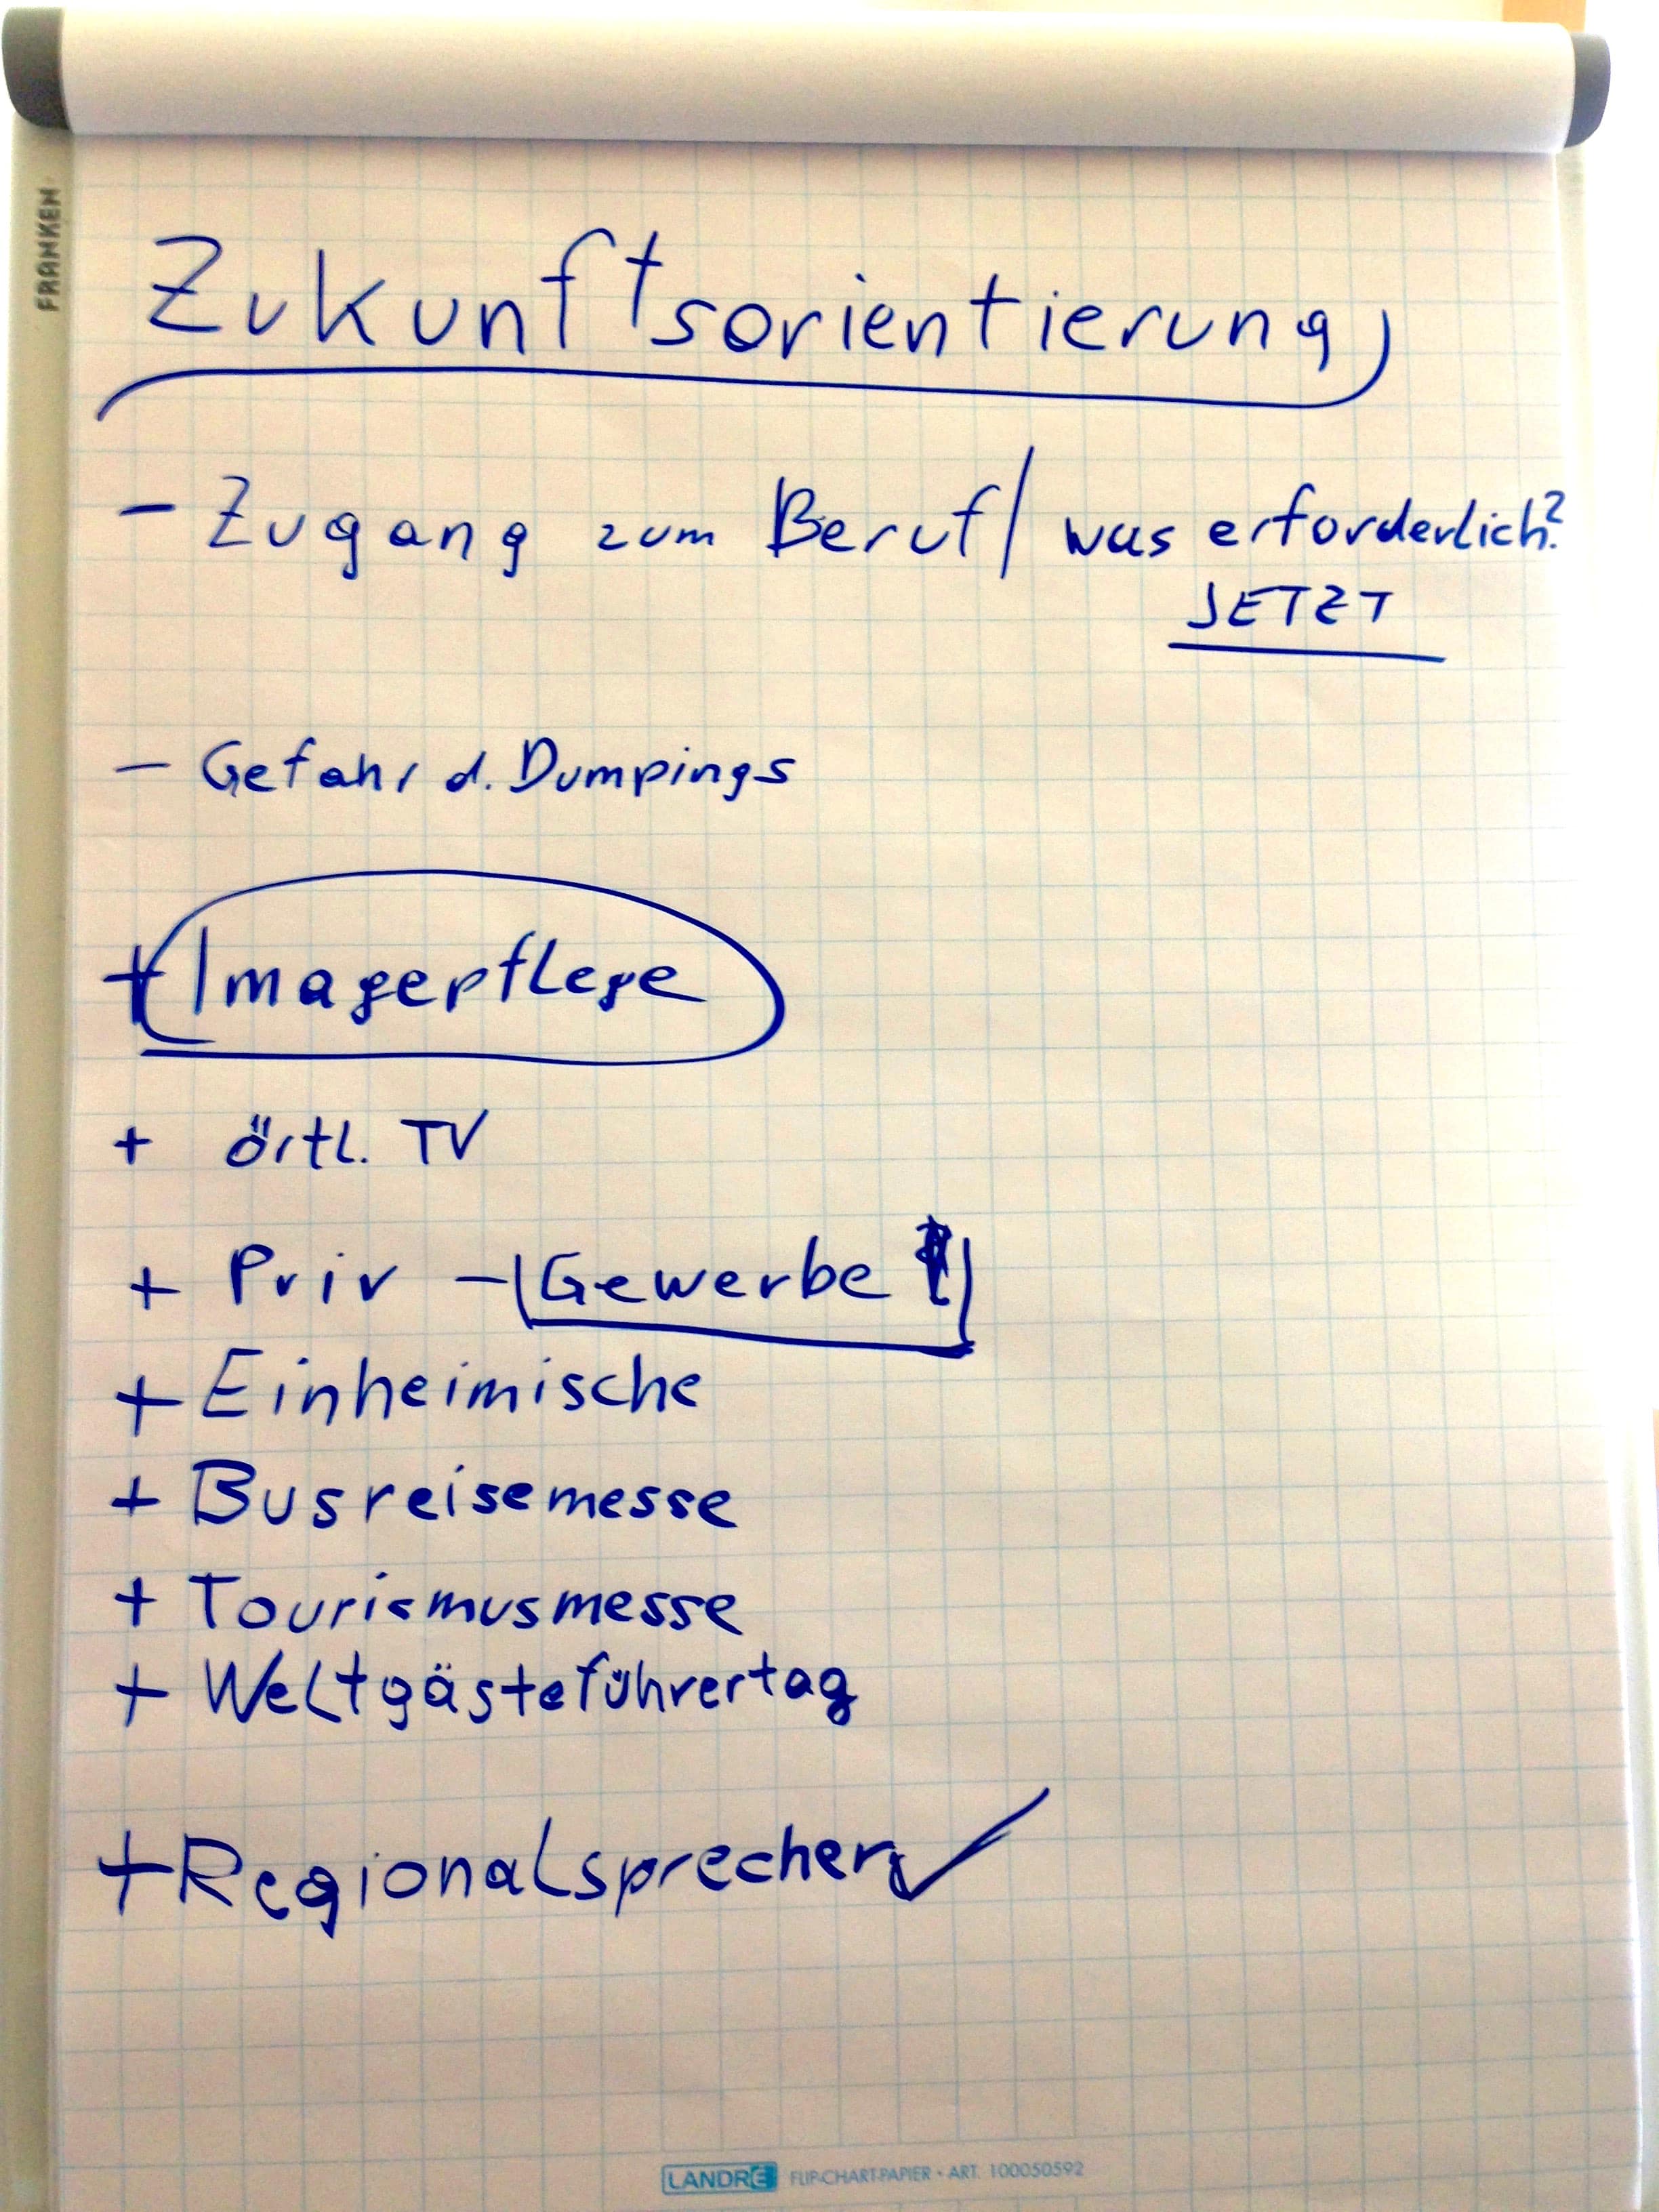 FRANKEN
Zukunftsorientierung
- Zugang zum Beruf / was erforderlich?
JETZT
- Gefahr d. Dumpings
+ Imagepflege
+ örtl. TV
+ Priv - Gewerbe
+ Einheimische
+ Busreisemesse
+ Tourismusmesse
+ Weltgästeführertag
+ Regionalsprecher ✓
LANDRÉ FLIP-CHART-PAPIER • ART. 100050592